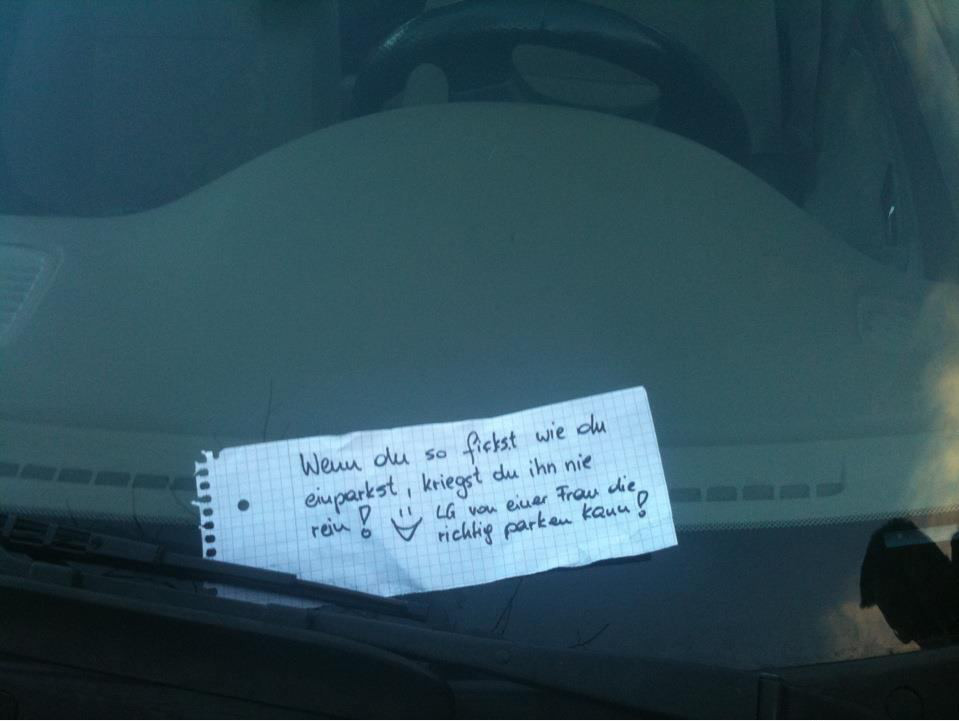 Wenn du so fickst wie du
einparkst, kriegst du ihn nie
rein! LG von einer Frau die
richtig parken kann!